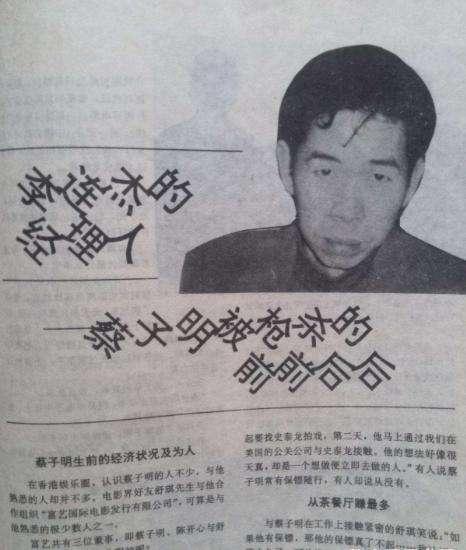 李连杰的
经理人
——蔡子明被枪杀的
前前后后
蔡子明生前的经济状况及为人
在香港娱乐圈，认识蔡子明的人不少，与他
熟悉的人却并不多。电影界好友舒琪先生与他合
作组织“富艺国际电影发行有限公司”，可算是与
他熟悉的极少数人之一。
富艺共有三位董事，即蔡子明、陈开心与舒
起要找史泰龙拍戏，第二天，他马上通过我们在
美国的公关公司与史泰龙接触。他的想法好像很
天真，却是一个想做便立即去做的人。”有人说蔡
子明常有保镖随行，有人却说从没有。
从茶餐厅赚最多
与蔡子明在工作上接触紧密的舒琪笑说，“如
果他有保镖，那他的保镖真了不起